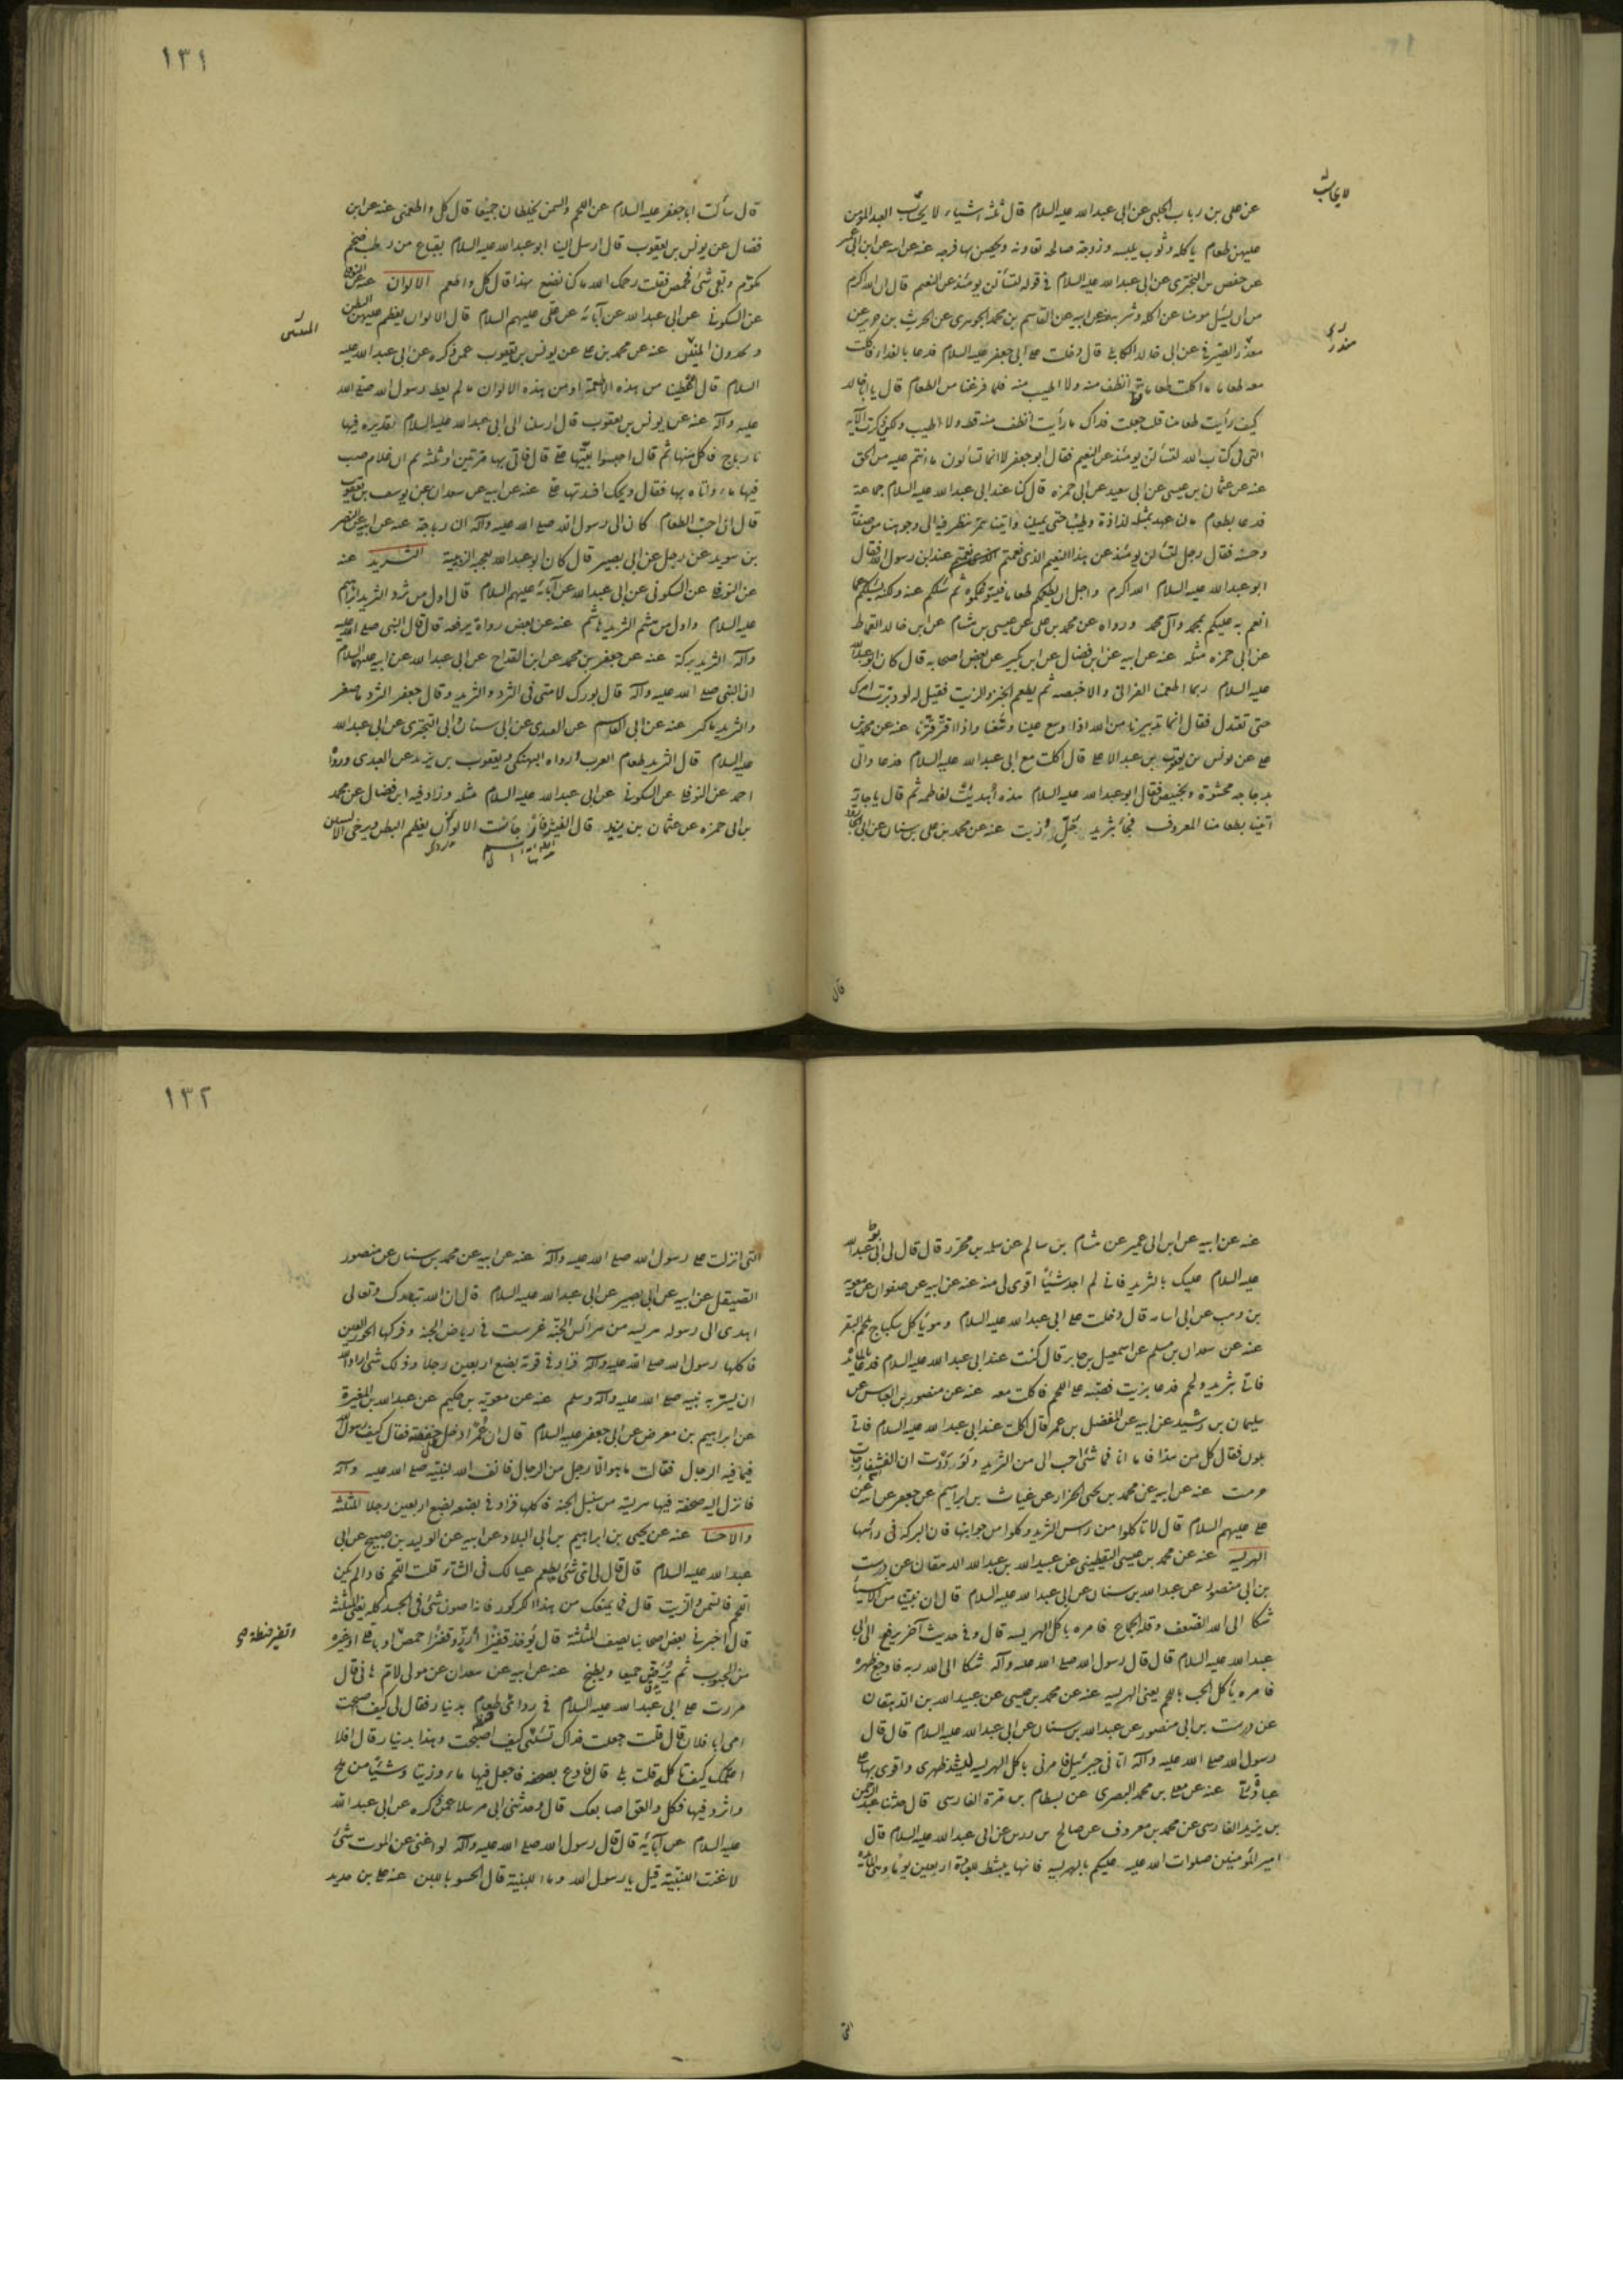 لا يحاسب
عن على بن رباب الحلبى عن ابى عبد الله عليه السلام قال ثلثة اشياء لا يحاسب العبد المؤمن
عليهن طعام ياكله وثوب يلبسه وزوجة صالحة تعاونه ويحصن بها فرجه عنه عن ابيه عن ابن ابى عمير
عن حفص بن البخترى عن ابى عبد الله عليه السلام فى قوله لتسألن يومئذ عن النعيم قال ان الله اكرم
من ان يسئل مومنا عن اكله وشربه عنه عن ابيه عن القاسم بن محمد الجوهرى عن الحرث بن حريز عن
الصيرفى عن ابى خالد الكابلى قال دخلت على ابى جعفر عليه السلام فدعا بالغداء فاكلت
معه طعاما ما اكلت طعاما قط انظف منه ولا اطيب منه فلما فرغنا من الطعام قال يا ابا خالد
كيف رأيت طعامنا قلت جعلت فداك ما رأيت انظف منه قط ولا اطيب ولكنى ذكرت الآية
التى فى كتاب الله لتسألن يومئذ عن النعيم فقال ابو جعفر لا انما تسألون عما انتم عليه من الحق
عنه عن عثمان بن عيسى عن ابى سعيد عن ابى حمزه قال كنا عند ابى عبد الله عليه السلام جماعة
فدعا بطعام ما لنا عهد بمثله لذاذة وطيبا حتى تملينا واتينا بتمر ننظر فيه الى وجوهنا من صفائه
وحسنه فقال رجل لتسألن يومئذ عن هذا النعيم الذى نعمتم عند ابن رسول الله فقال
ابو عبد الله عليه السلام الله اكرم واجل ان يطعمكم طعاما فيسوغكموه ثم يسئلكم عنه ولكنه يسئلكم عما
انعم به عليكم بمحمد وآل محمد ورواه عن محمد بن على عن عيسى بن هشام عن ابى خالد القماط
عن ابى حمزه مثله عنه عن ابيه عن ابن فضال عن ابن بكير عن بعض اصحابه قال كان ابو عبد الله
عليه السلام ربما اطعمنا الفرانى والاخبصة ثم يطعم الخبز والزيت فقيل له لو دبرت امرك
حتى تعتدل فقال انما تدبيرنا من الله اذا وسع علينا وسعنا واذا قتر قترنا عنه عن محمد بن
على عن يونس بن يعقوب عن عبد الاعلى قال اكلت مع ابى عبد الله عليه السلام فدعا واتى
بدجاجه محشوة وبخبيص فقال ابو عبد الله عليه السلام هذه اهديت لفاطمه ثم قال يا جارية
اتينا بطعامنا المعروف فجاء بثريد خل وزيت عنه عن محمد بن على بن سنان عن ابى الجارود
قال
١٣١
قال سألت ابا جعفر عليه السلام عن اللحم والسمن يخلطان جميعا قال كل واطعمنى عنه عن ابن
فضال عن يونس بن يعقوب قال ارسل الينا ابو عبد الله عليه السلام بقباع من رطب ضخم
مكوم وبقى شئ فحمض فقلت رحمك الله ما كنا نصنع بهذا قال كل واطعم الالوان عنه عن النوفلى
عن السكونى عن ابى عبد الله عن آبائه عن على عليهم السلام قال الالوان يعظم عليهن البطن
عنه عن محمد بن على عن يونس بن يعقوب عمن ذكره عن ابى عبد الله عليه
السلام قال اعطينا من هذه الاطعمة او من هذه الالوان ما لم يعط رسول الله صلى الله
عليه وآله عنه عن يونس بن يعقوب قال ارسلنا الى ابى عبد الله عليه السلام بقديره فيها
نارباج فاكل منها ثم قال احبسوا بقيتها على قال فاتى بها مرتين او ثلثه ثم ان الغلام صب
فيها ماء واتاه بها فقال ويحك افسدتها على عنه عن ابيه عن سعدان عن يوسف بن يعقوب
قال ان احب الطعام كان الى رسول الله صلى الله عليه وآله النارباجة عنه عن ابيه عن النضر
بن سويد عن رجل عن ابى بصير قال كان ابو عبد الله يعجبه الزبيبة الثريد عنه
عن النوفلى عن السكونى عن ابى عبد الله عن آبائه عليهم السلام قال اول من ثرد الثريد ابراهيم
عليه السلام واول من هشم الثريد هاشم عنه عن بعض رواه يرفعه قال قال النبى صلى الله عليه
وآله الثريد بركة عنه عن جعفر بن محمد عن ابن القداح عن ابى عبد الله عن ابيه عليهما السلام
ان النبى صلى الله عليه وآله قال بورك لامتى فى الثرد والثريد وقال جعفر الثرد ما صغر
والثريد ما كبر عنه عن ابى القاسم عن العبدى عن ابى سنان وابى البخترى عن ابى عبد الله
عليه السلام قال الثريد طعام العرب ورواه النهيكى ويعقوب بن يزيد عن العبدى ورواه
احمد عن النوفلى عن السكونى عن ابى عبد الله عليه السلام مثله وزاد فيه ابن فضال عن محمد
بن ابى حمزه عن عثمان بن يزيد قال الالوان يعظم البطن ويرخى الاليتين
عنه عن ابيه عن ابن ابى عمير عن هشام بن سالم عن سلمه بن محرز قال قال لى ابو عبد الله
عليه السلام عليك بالثريد فانى لم اجد شيئا اقوى لى منه عنه عن ابيه عن صفوان عن معويه
بن وهب عن ابى اسامه قال دخلت على ابى عبد الله عليه السلام وهو يأكل سكباج بلحم البقر
عنه عن سعدان بن مسلم عن اسمعيل بن جابر قال كنت عند ابى عبد الله عليه السلام فدعا بالمائده
فاتى بثريد ولحم فدعا بزيت فصبه على اللحم فاكلت معه عنه عن منصور بن العباس عن
سليمان بن رشيد عن ابيه عن المفضل بن عمر قال اكلت عند ابى عبد الله عليه السلام فاتى
بلون فقال كل من هذا فاما انا فما شئ احب الى من الثريد ولوددت ان
حرمت عنه عن ابيه عن محمد بن يحيى الخزاز عن غياث بن ابراهيم عن جعفر عن ابيه عن
على عليهم السلام قال لا تاكلوا من راس الثريد وكلوا من جوانبها فان البركة فى راسها
الهريسه عنه عن محمد بن عيسى اليقطينى عن عبيد الله بن عبد الله الدهقان عن درست
بن ابى منصور عن عبد الله بن سنان عن ابى عبد الله عليه السلام قال ان نبيا من الانبياء
شكا الى الله الضعف وقلة الجماع فامره باكل الهريسه قال وفى حديث آخر يرفع الى ابى
عبد الله عليه السلام قال قال رسول الله صلى الله عليه وآله شكا الى الله ربه فاوجع ظهره
فامره ياكل الحب باللحم يعنى الهريسه عنه عن محمد بن عيسى عن عبيد الله بن الدهقان
عن درست بن ابى منصور عن عبد الله بن سنان عن ابى عبد الله عليه السلام قال قال
رسول الله صلى الله عليه وآله اتانى جبرئيل فامرنى باكل الهريسه ليشتد ظهرى واقوى بها على
عبادة عنه عن معلى بن محمد البصرى عن بسطام بن مرة الفارسى قال حدثنا عبد الرحمن
بن يزيد الفارسى عن محمد بن معروف عن صالح بن رزين عن ابى عبد الله عليه السلام قال
امير المؤمنين صلوات الله عليه عليكم بالهريسه فانها ينشط للعبادة اربعين يوما وهى المائدة
التى
١٣٢
التى انزلت على رسول الله صلى الله عليه وآله عنه عن ابيه عن محمد بن سنان عن منصور
الصيقل عن ابيه عن ابى بصير عن ابى عبد الله عليه السلام قال ان الله تبارك وتعالى
اهدى الى رسوله هريسه من هرائس الجنة غرست فى رياض الجنة وفركها الحور العين
فاكلها رسول الله صلى الله عليه وآله فزاد فى قوته بضع اربعين رجلا وذلك شئ اراد الله
ان يسر به نبيه صلى الله عليه وآله وسلم عنه عن معوية بن حكيم عن عبد الله بن المغيرة
عن ابراهيم بن معرض عن ابى جعفر عليه السلام قال ان عمر دخل على حفصة فقال كيف رسول الله
فيما فيه الرجال فقالت ما هو الا رجل من الرجال فانف الله لنبيه صلى الله عليه وآله
فانزل اليه صحفة فيها هريسة من سنبل الجنة فاكلها فزاد فى بضعه بضع اربعين رجلا المثلثة
والاحسا عنه عن يحيى بن ابراهيم بن ابى البلاد عن ابيه عن الوليد بن صبيح عن ابى
عبد الله عليه السلام قال قال لى اى شئ يطعم عيالك فى الشتاء قلت اللحم فاذا لم يكن
اللحم فالسمن والزيت قال فما يمنعك من هذا الكركور فانه اصون شئ فى الجسد كله يعنى المثلثة
قال اخبرنى بعض اصحابنا يصف المثلثة قال يؤخذ قفيز ارز وقفيز حمص او باقلى او غيره
من الحبوب ثم يرض جميعا ويطبخ عنه عن ابيه عن سعدان عن مولى لام هانى قال
مررت على ابى عبد الله عليه السلام فى ردائى طعام بدينار فقال لى كيف اصبحت
اى ابا فلان قال قلت جعلت فداك تسئلنى كيف اصبحت وهذا بدينار قال افلا
اعلمك كيف تاكله قلت بلى قال فادع بصحفه فاجعل فيها ماء وزيتا وشيئا من ملح
واثرد فيها فكل والعق اصابعك قال وحدثنى ابى مرسلا عمن ذكره عن ابى عبد الله
عليه السلام عن آبائه قال قال رسول الله صلى الله عليه وآله لو اغنى عن الموت شئ
لاغنت التلبينة قيل يا رسول الله وما التلبينة قال الحسو باللبن عنه على بن حديد